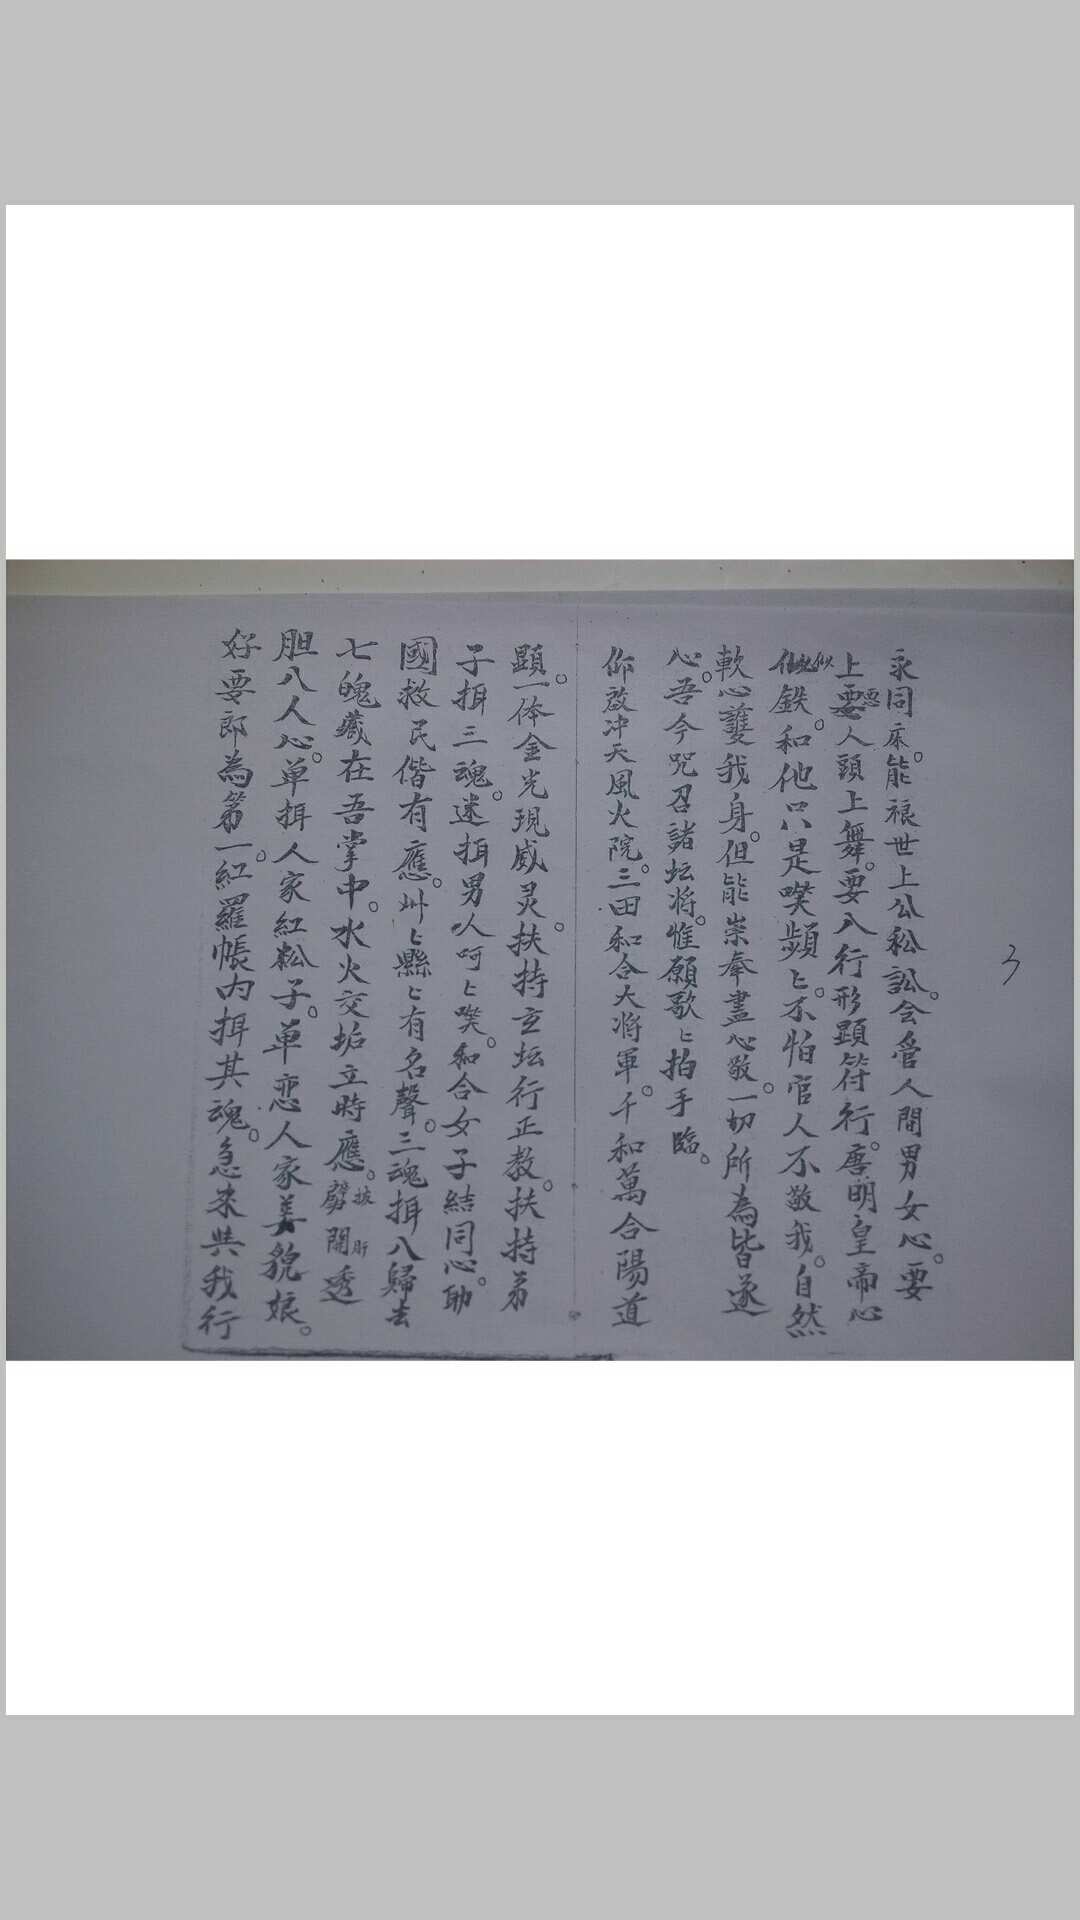 永同床。能禄世上公私訟。会管人間男女心。要
上惡人頭上舞。要入行形顕符行。唐明皇帝心
似鉄。和他只是笑頻匕。不怕官人不敬我。自然
軟心護我身。但能崇奉盡心敬。一切所為皆遂
心。吾今咒召諸坛将。惟願歌匕拍手臨。
仰啟冲天風火院。三田和合大将軍。千和萬合陽道
顕。一体金光現威灵。扶持立坛行正教。扶持弟
子揖三魂。迷揖男人呵匕笑。和合女子結同心。助
國救民偕有應。州匕縣匕有名聲。三魂揖入歸去
七魄藏在吾掌中。水火交垢立時應。劈開透
披肝
胆入人心。单揖人家紅粉子。单恋人家美貌娘。
好要郎為第一。紅羅帳内揖其魂。急来與我行
3